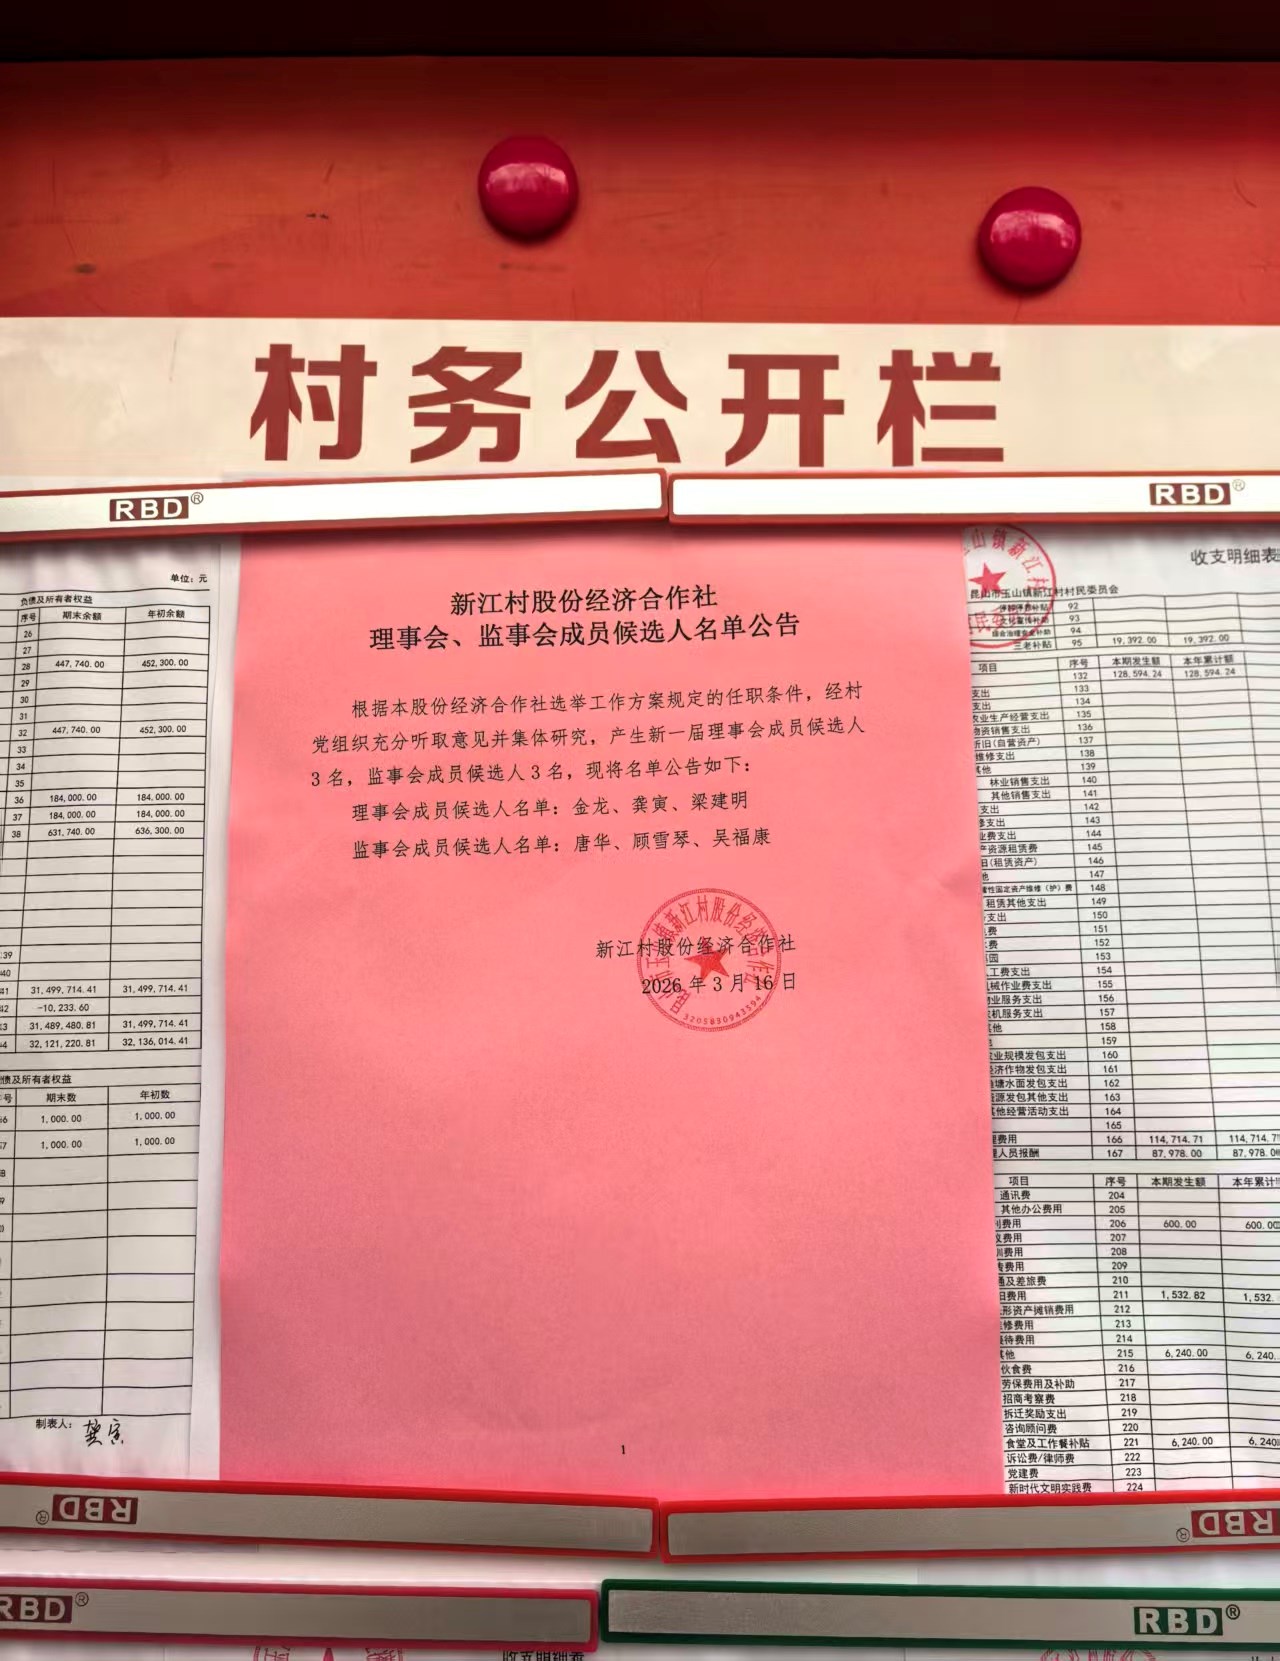 村务公开栏
RBD®
RBD®
单位：元
负债及所有者权益
序号 期末余额 年初余额
26
27
28 447,740.00 452,300.00
29
30
31
32 447,740.00 452,300.00
33
34
35
36 184,000.00 184,000.00
37 184,000.00 184,000.00
38 631,740.00 636,300.00
39
40
41 31,499,714.41 31,499,714.41
42 -10,233.60
43 31,489,480.81 31,499,714.41
44 32,121,220.81 32,136,014.41
债及所有者权益
号 期末数 年初数
1,000.00 1,000.00
1,000.00 1,000.00
制表人：龚寅
新江村股份经济合作社
理事会、监事会成员候选人名单公告
根据本股份经济合作社选举工作方案规定的任职条件，经村
党组织充分听取意见并集体研究，产生新一届理事会成员候选人
3名，监事会成员候选人3名，现将名单公告如下：
理事会成员候选人名单：金龙、龚寅、梁建明
监事会成员候选人名单：唐华、顾雪琴、吴福康
新江村股份经济合作社
2026年3月16日
3205830943594
1
收支明细表
昆山市玉山镇新江村村民委员会
92
文化宣传补助 93
综合治理资金补助 94
三老补贴 95 19,392.00 19,392.00
项目 序号 本期发生额 本年累计额
132 128,594.24 128,594.24
支出 133
支出 134
农业生产经营支出 135
物资销售支出 136
折旧(自营资产) 137
维修支出 138
其他 139
林业销售支出 140
其他销售支出 141
支出 142
修支出 143
业费支出 144
产资源租赁费 145
旧(租赁资产) 146
他 147
营性固定资产维修（护）费 148
租赁其他支出 149
支出 150
费 151
费 152
园 153
工费支出 154
机械作业费支出 155
物业服务支出 156
农机服务支出 157
其他 158
159
农业规模发包支出 160
经济作物发包支出 161
鱼塘水面发包支出 162
资源发包其他支出 163
其他经营活动支出 164
165
费用 166 114,714.71 114,714.7
人员报酬 167 87,978.00 87,978.0
项目 序号 本期发生额 本年累计
通讯费 204
其他办公费用 205
费用 206 600.00 600.00
费用 207
训费用 208
费用 209
通及差旅费 210
旧费用 211 1,532.82 1,532.
形资产摊销费用 212
修费用 213
接待费用 214
其他 215 6,240.00 6,240.
伙食费 216
劳保费用及补助 217
招商考察费 218
拆迁奖励支出 219
咨询顾问费 220
食堂及工作餐补贴 221 6,240.00 6,240
诉讼费/律师费 222
党建费 223
新时代文明实践费 224
RBD®
RBD®
RBD®
RBD®
收支明细表